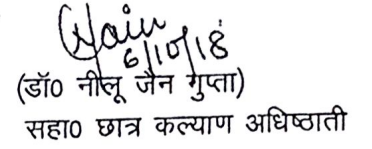 Njain
6/10/18
(डॉ0 नीलू जैन गुप्ता)
सहा0 छात्र कल्याण अधिष्ठाती